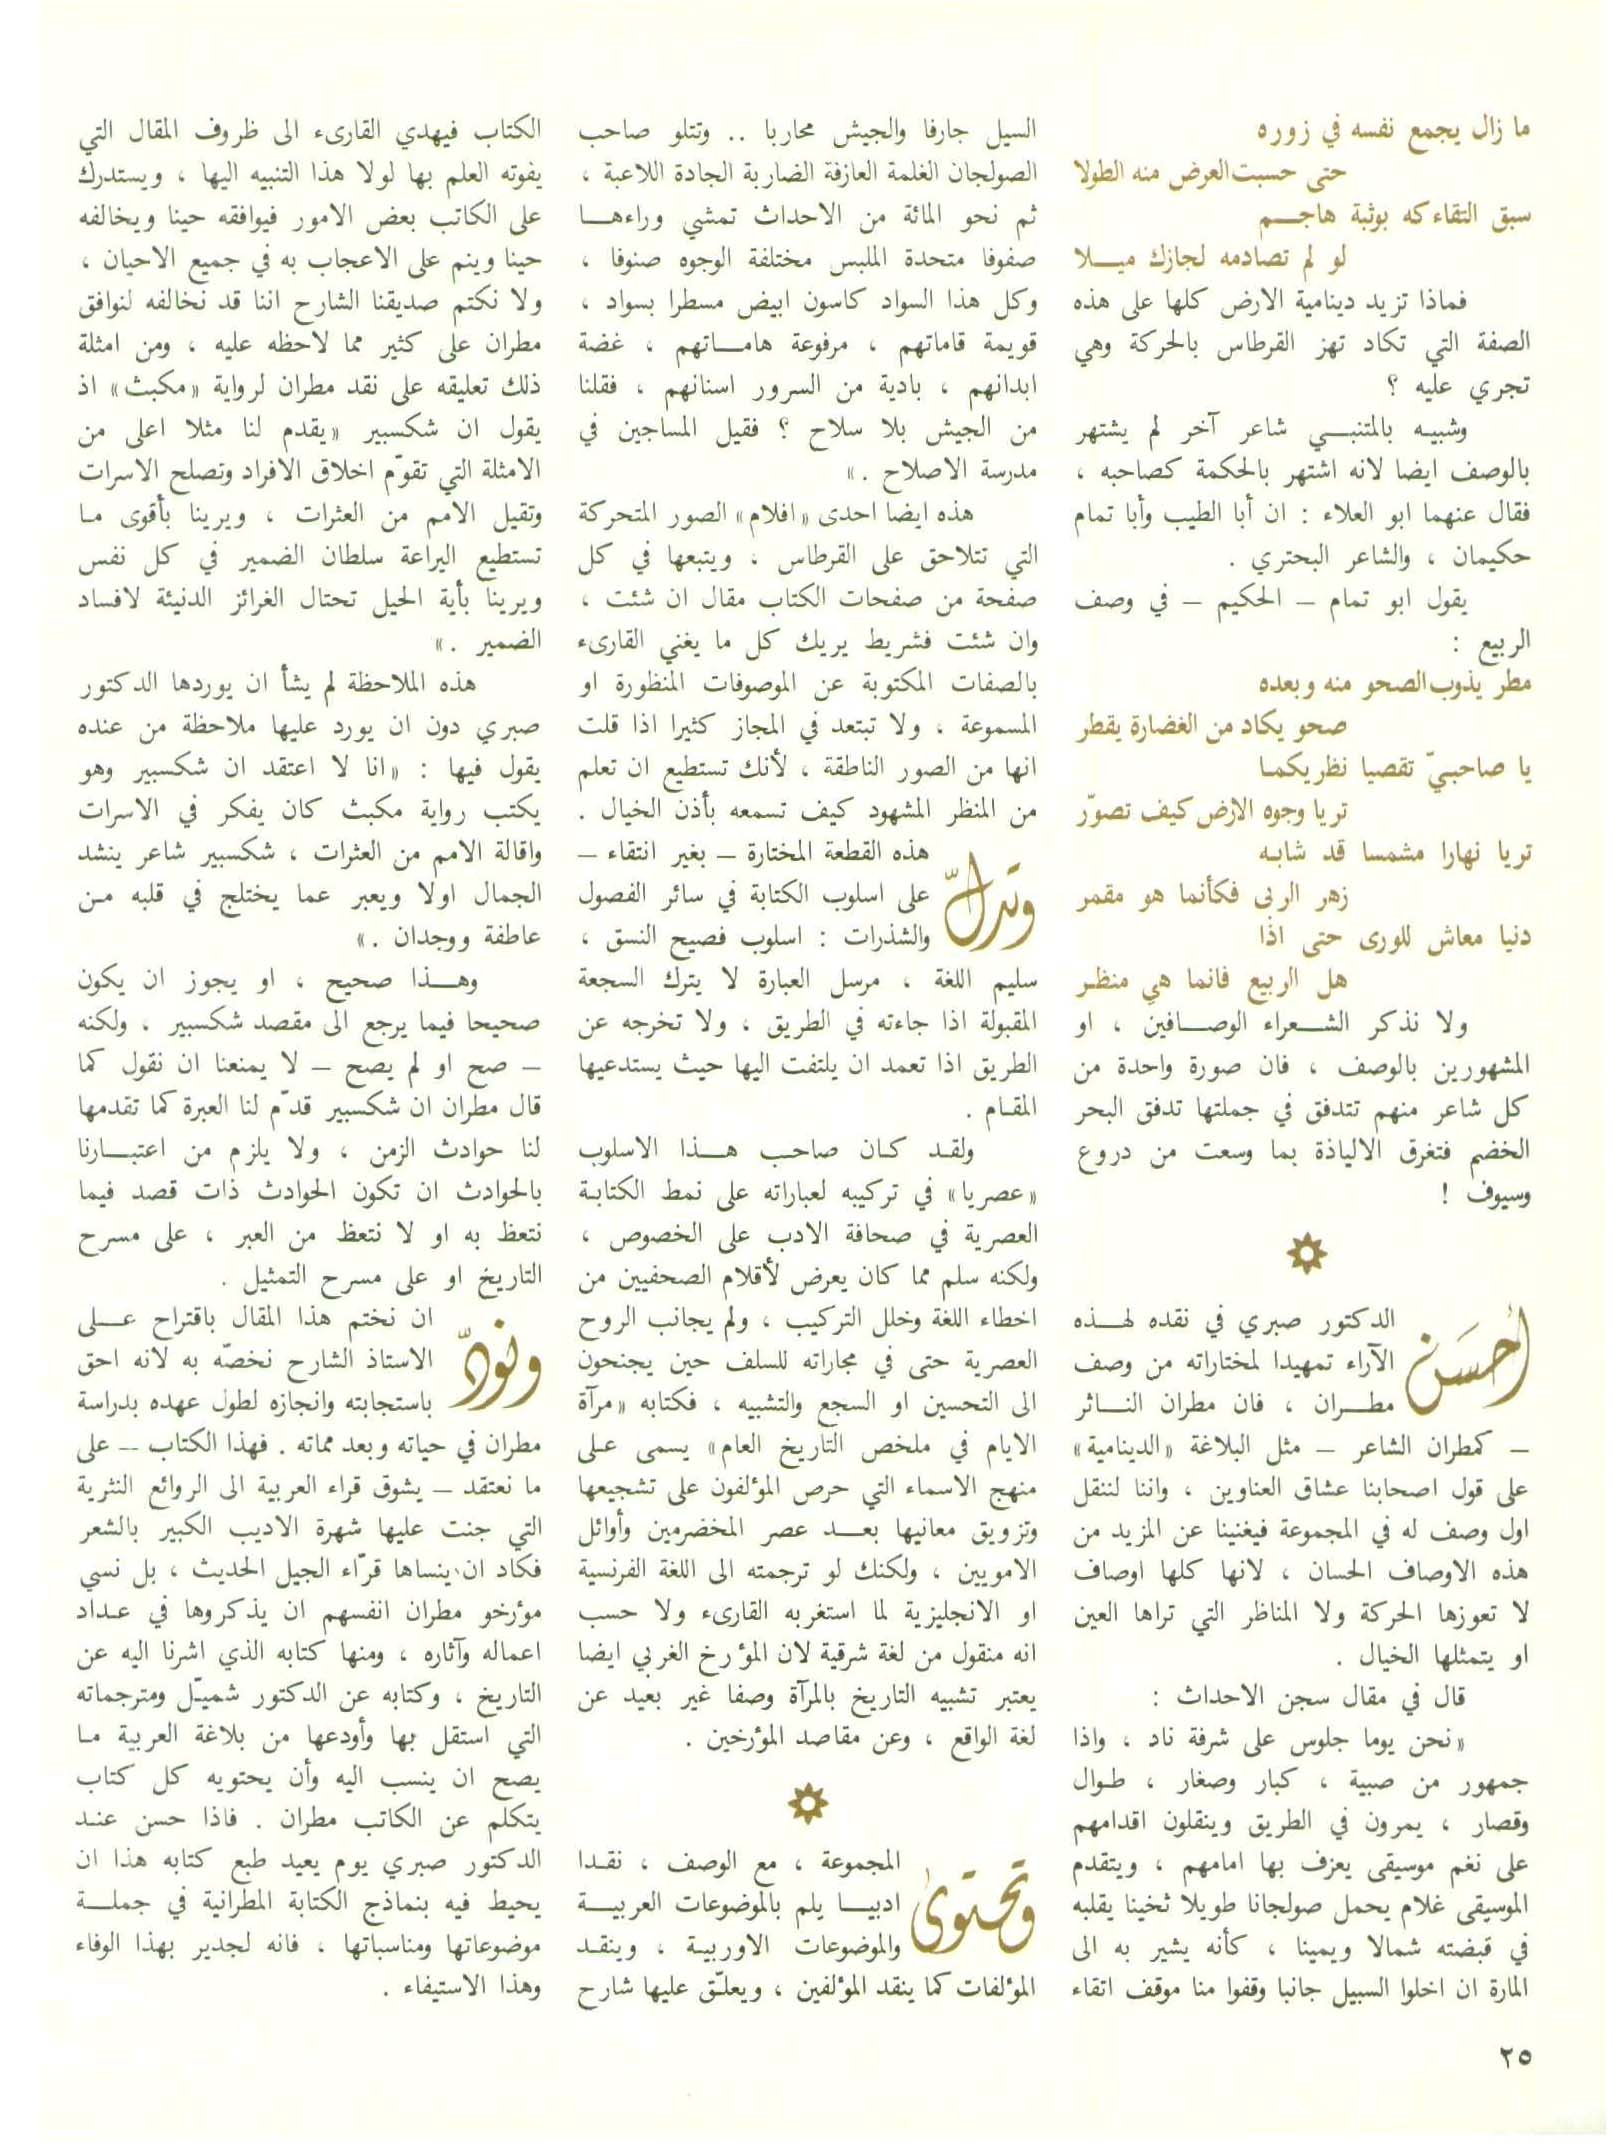 ما زال يجمع نفسه في زوره
حتى حسبت العرض منه الطولا
سبق التقاءكه بوثبة هاجـــم
لو لم تصادمه لجازك ميـــلا
فماذا تزيد دينامية الارض كلها على هذه
الصفة التي تكاد تهز القرطاس بالحركة وهي
تجري عليه ؟
وشبيـه بالمتنبـــي شاعر آخر لم يشتهر
بالوصف ايضا لانه اشتهر بالحكمة كصاحبه ،
فقال عنهما ابو العلاء : ان أبا الطيب وأبا تمام
حكيمان ، والشاعر البحتري .
يقول ابو تمام – الحكيم – في وصف
الربيع :
مطر يذوب الصحو منه وبعده
صحو يكاد من الغضارة يقطر
يا صاحبيّ تقصيا نظريكمـا
تريا وجوه الارض كيف تصوّر
تريا نهارا مشمسا قد شابـه
زهر الربى فكأنما هو مقمر
دنيا معاش للورى حتى اذا
هل الربيع فانما هي منظـر
ولا نذكر الشــعراء الوصــافين ، او
المشهورين بالوصف ، فان صورة واحدة من
كل شاعر منهم تتدفق في جملتها تدفق البحر
الخضم فتغرق الالياذة بما وسعت من دروع
وسيوف !
أحسَن الدكتور صبري في نقده لهــذه
الآراء تمهيدا لمختاراته من وصف
مطــران ، فان مطران النــاثر
– كمطران الشاعر – مثل البلاغة «الدينامية»
على قول اصحابنا عشاق العناوين ، واننا لننقل
اول وصف له في المجموعة فيغنينا عن المزيد من
هذه الاوصاف الحسان ، لانها كلها اوصاف
لا تعوزها الحركة ولا المناظر التي تراها العين
او يتمثلها الخيال .
قال في مقال سجن الاحداث :
«نحن يوما جلوس على شرفة ناد ، واذا
جمهور من صبية ، كبار وصغار ، طـوال
وقصار ، يمرون في الطريق وينقلون اقدامهم
على نغم موسيقى يعزف بها امامهم ، ويتقدم
الموسيقى غلام يحمل صولجانا طويلا ثخينا يقلبه
في قبضته شمالا ويمينا ، كأنه يشير به الى
المارة ان اخلوا السبيل جانبا وقفوا منا موقف اتقاء
السيل جارفا والجيش محاربا .. وتتلو صاحب
الصولجان الغلمة العازفة الضاربة الجادة اللاعبة ،
ثم نحو المائة من الاحداث تمشي وراءهــا
صفوفا متحدة الملبس مختلفة الوجوه صنوفا ،
وكل هذا السواد كاسون ابيض مسطرا بسواد ،
قويمة قاماتهم ، مرفوعة هامــاتهم ، غضة
ابدانهم ، بادية من السرور اسنانهم ، فقلنا
من الجيش بلا سلاح ؟ فقيل المساجين في
مدرسة الاصلاح .»
هذه ايضا احدى «افلام» الصور المتحركة
التي تتلاحق على القرطاس ، ويتبعها في كل
صفحة من صفحات الكتاب مقال ان شئت ،
وان شئت فشريط يريك كل ما يغني القارىء
بالصفات المكتوبة عن الموصوفات المنظورة او
المسموعة ، ولا تبتعد في المجاز كثيرا اذا قلت
انها من الصور الناطقة ، لأنك تستطيع ان تعلم
من المنظر المشهود كيف تسمعه بأذن الخيال .
وتدلّ هذه القطعة المختارة – بغير انتقاء –
على اسلوب الكتابة في سائر الفصول
والشذرات : اسلوب فصيح النسق ،
سليم اللغة ، مرسل العبارة لا يترك السجعة
المقبولة اذا جاءته في الطريق ، ولا تخرجه عن
الطريق اذا تعمد ان يلتفت اليها حيث يستدعيها
المقـام .
ولقـد كـان صاحب هــذا الاسلوب
«عصريا» في تركيبه لعباراته على نمط الكتابة
العصرية في صحافة الادب على الخصوص ،
ولكنه سلم مما كان يعرض لأقلام الصحفيين من
اخطاء اللغة وخلل التركيب ، ولم يجانب الروح
العصرية حتى في مجاراته للسلف حين يجنحون
الى التحسين او السجع والتشبيه ، فكتابه «مرآة
الايام في ملخص التاريخ العام» يسمى عـلى
منهج الاسماء التي حرص المؤلفون على تشجيعها
وتزويق معانيها بعــد عصر المخضرمين وأوائل
الامويين ، ولكنك لو ترجمته الى اللغة الفرنسية
او الانجليزية لما استغربه القارىء ولا حسب
انه منقول من لغة شرقية لان المؤرخ الغربي ايضا
يعتبر تشبيه التاريخ بالمرآة وصفا غير بعيد عن
لغة الواقع ، وعن مقاصد المؤرخين .
وتحتوى المجموعة ، مع الوصف ، نقـدا
ادبيـــا يلم بالموضوعات العربيـــة
والموضوعات الاوربيـة ، وينقـد
المؤلفات كما ينقد المؤلفين ، ويعلّق عليها شارح
الكتاب فيهدي القارىء الى ظروف المقال التي
يفوته العلم بها لولا هذا التنبيه اليها ، ويستدرك
على الكاتب بعض الامور فيوافقه حينا ويخالفه
حينا وينم على الاعجاب به في جميع الاحيان ،
ولا نكتم صديقنا الشارح اننا قد نخالفه لنوافق
مطران على كثير مما لاحظه عليه ، ومن امثلة
ذلك تعليقه على نقد مطران لرواية «مكبث» اذ
يقول ان شكسبير «يقدم لنا مثلا اعلى من
الامثلة التي تقوّم اخلاق الافراد وتصلح الاسرات
وتقيل الامم من العثرات ، ويرينا بأقوى مـا
تستطيع اليراعة سلطان الضمير في كل نفس
ويرينا بأية الحيل تحتال الغرائز الدنيئة لافساد
الضمير .»
هذه الملاحظة لم يشأ ان يوردها الدكتور
صبري دون ان يورد عليها ملاحظة من عنده
يقول فيها : «انا لا اعتقد ان شكسبير وهو
يكتب رواية مكبث كان يفكر في الاسرات
واقالة الامم من العثرات ، شكسبير شاعر ينشد
الجمال اولا ويعبر عما يختلج في قلبه مـن
عاطفة ووجدان .»
وهــذا صحيح ، او يجوز ان يكون
صحيحا فيما يرجع الى مقصد شكسبير ، ولكنه
– صح او لم يصح – لا يمنعنا ان نقول كما
قال مطران ان شكسبير قدّم لنا العبرة كما تقدمها
لنا حوادث الزمن ، ولا يلزم من اعتبــارنا
بالحوادث ان تكون الحوادث ذات قصد فيما
نتعظ به او لا نتعظ من العبر ، على مسرح
التاريخ او على مسرح التمثيل .
ونودّ ان نختم هذا المقال باقتراح عــلى
الاستاذ الشارح نخصّه به لانه احق
باستجابته وانجازه لطول عهده بدراسة
مطران في حياته وبعد مماته . فهذا الكتاب – على
ما نعتقد – يشوق قراء العربية الى الروائع النثرية
التي جنت عليها شهرة الاديب الكبير بالشعر
فكاد ان ينساها قرّاء الجيل الحديث ، بل نسي
مؤرخو مطران انفسهم ان يذكروها في عـداد
اعماله وآثاره ، ومنها كتابه الذي اشرنا اليه عن
التاريخ ، وكتابه عن الدكتور شميّل ومترجماته
التي استقل بها وأودعها من بلاغة العربية مـا
يصح ان ينسب اليه وأن يحتويه كل كتاب
يتكلم عن الكاتب مطران . فاذا حسن عنـد
الدكتور صبري يوم يعيد طبع كتابه هذا ان
يحيط فيه بنماذج الكتابة المطرانية في جملــة
موضوعاتها ومناسباتها ، فانه لجدير بهذا الوفاء
وهذا الاستيفاء .
٢٥